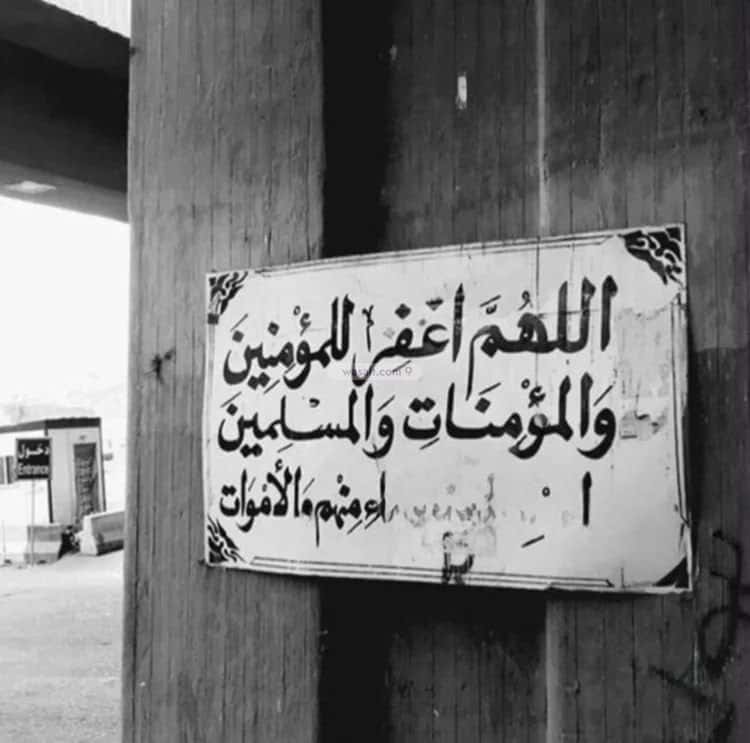 اللهُمَّ اغْفِر للمؤْمِنِينَ
وَالمؤْمِنَاتِ وَالمسْلِمينَ
مِنْهم وَالأمْوَات
دخول
Entrance